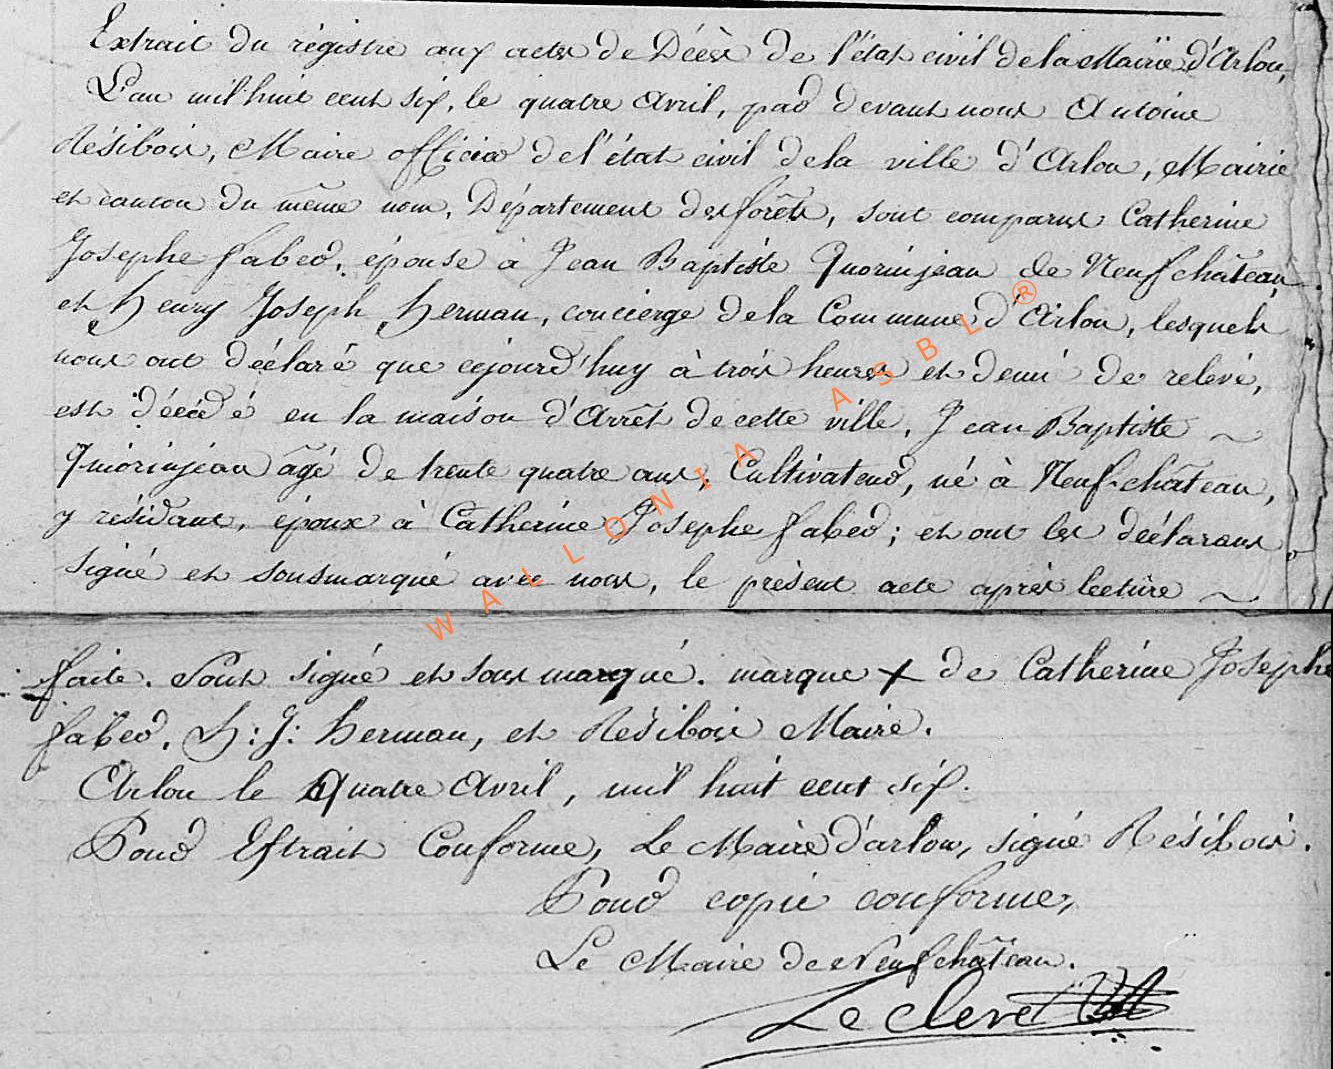 Extrait du régistre aux actes de Décès de l'état civil de la Mairie d'Arlon,
L'an mil huit cent six, le quatre Avril, par devant nous Antoine
Résibois, Maire officier de l'état civil de la ville d'Arlon, Mairie
et canton du même nom, Département des forêts, sont comparus Catherine
Josephe faber, épouse à Jean Baptiste Quorinjean de Neufchâteau,
et Henry Joseph Herman, concierge de la Commune d'Arlon, lesquels
nous ont déclaré que cejourd'huy à trois heures et demi de relevé,
est décédé en la maison d'Arrêt de cette ville, Jean Baptiste
Quorinjean âgé de trente quatre ans, Cultivateur, né à Neufchâteau,
y résidant, époux à Catherine Josephe faber; et ont les déclarans
signé et sousmarqué avec nous, le présent acte après lecture
faite. Sont signé et sousmarqué. marque + de Catherine Josephe
faber. H: J: Herman, et Résibois Maire.
Arlon le Quatre Avril, mil huit cent six.
Pour Extrait Conforme, Le Maire d'arlon, signé Résibois.
Pour copie conforme,
Le Maire de Neufchâteau.
Leclere
WALLONIA ASBL ®